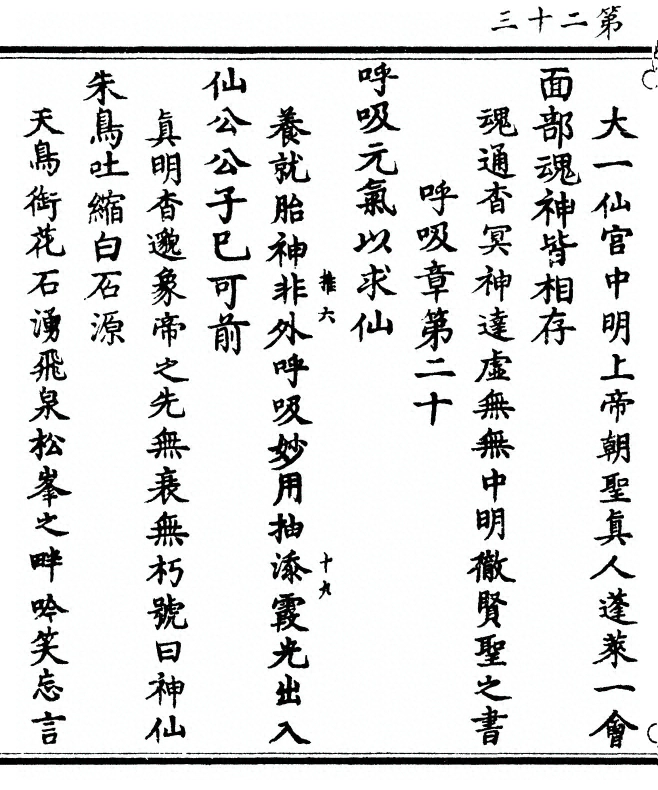 第二十三
大一仙官中明上帝朝聖真人蓬萊一會
面部魂神皆相存
魂通杳冥神達虛無無中明徹賢聖之書
呼吸章第二十
呼吸元氣以求仙
養就胎神非外呼吸妙用抽添霞光出入
推六
十九
仙公公子已可前
真明杳邈象帝之先無衰無朽號曰神仙
朱鳥吐縮白石源
天鳥銜花石湧飛泉松峯之畔吟笑忘言